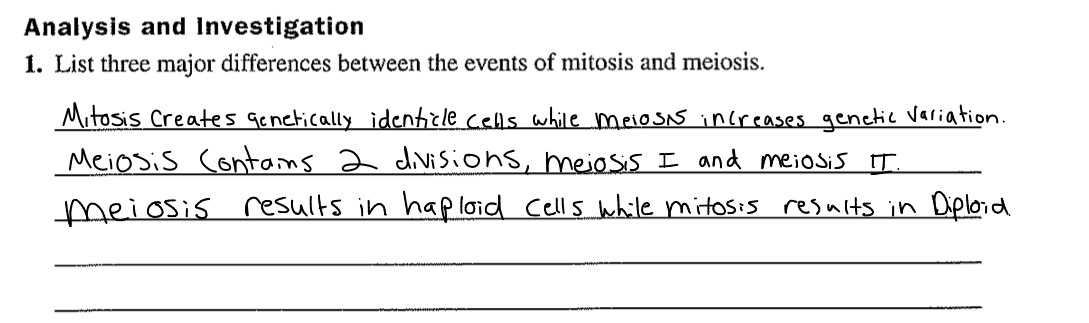 Analysis and Investigation
1. List three major differences between the events of mitosis and meiosis.
Mitosis Creates genetically identicle cells while meiosis increases genetic variation.
Meiosis Contains 2 divisions, meiosis I and meiosis II.
meiosis results in haploid cells while mitosis results in Diploid